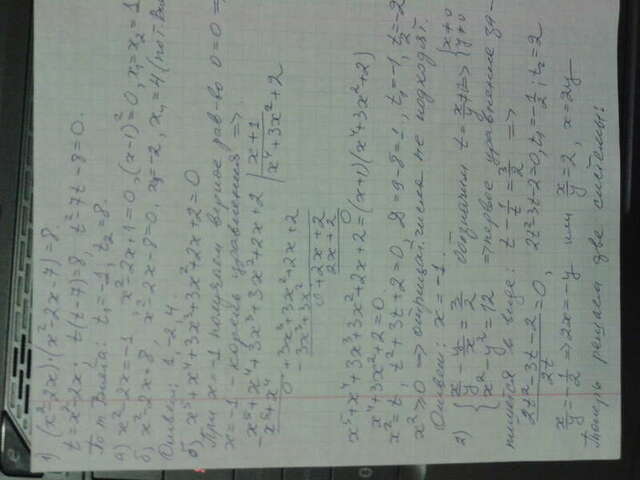 1) (x²-2x)·(x²-2x-7)=8.
t=x²-2x. t(t-7)=8, t²-7t-8=0.
По т. Виета: t₁=-1, t₂=8.
а) x²-2x=-1 x²-2x+1=0, (x-1)²=0, x₁=x₂=1
б) x²-2x=8, x²-2x-8=0, x₃=-2, x₄=4 (по т. Ви
Ответ: 1, -2, 4.
б) x⁵+x⁴+3x³+3x²+2x+2=0
При x=-1 получаем верное рав-во 0=0 =>
x=-1 - корень уравнения =>
x⁵+x⁴+3x³+3x²+2x+2 | x+1
x⁵+x⁴ x⁴+3x²+2
0+3x³+3x²+2x+2
-3x³+3x²
0+2x+2
2x+2
0
x⁵+x⁴+3x³+3x²+2x+2=(x+1)(x⁴+3x²+2)
x⁴+3x²+2=0
x²=t; t²+3t+2=0, D=9-8=1, t₁=-1, t₂=-2
x²≥0 => отрицат. числа не подходят.
Ответ: x=-1.
2) { x/y - y/x = 3/2 Обозначим t=x/y => { x≠0
x²-y²=12 y≠0
=> первые уравнение за-
пишется в виде: t-1/t=3/2 =>
2t²-3t-2/2t=0, 2t²-3t-2=0, t₁=-1/2; t₂=2
x/y=-1/2 => 2x=-y или x/y=2, x=2y
Теперь решаем две системы: